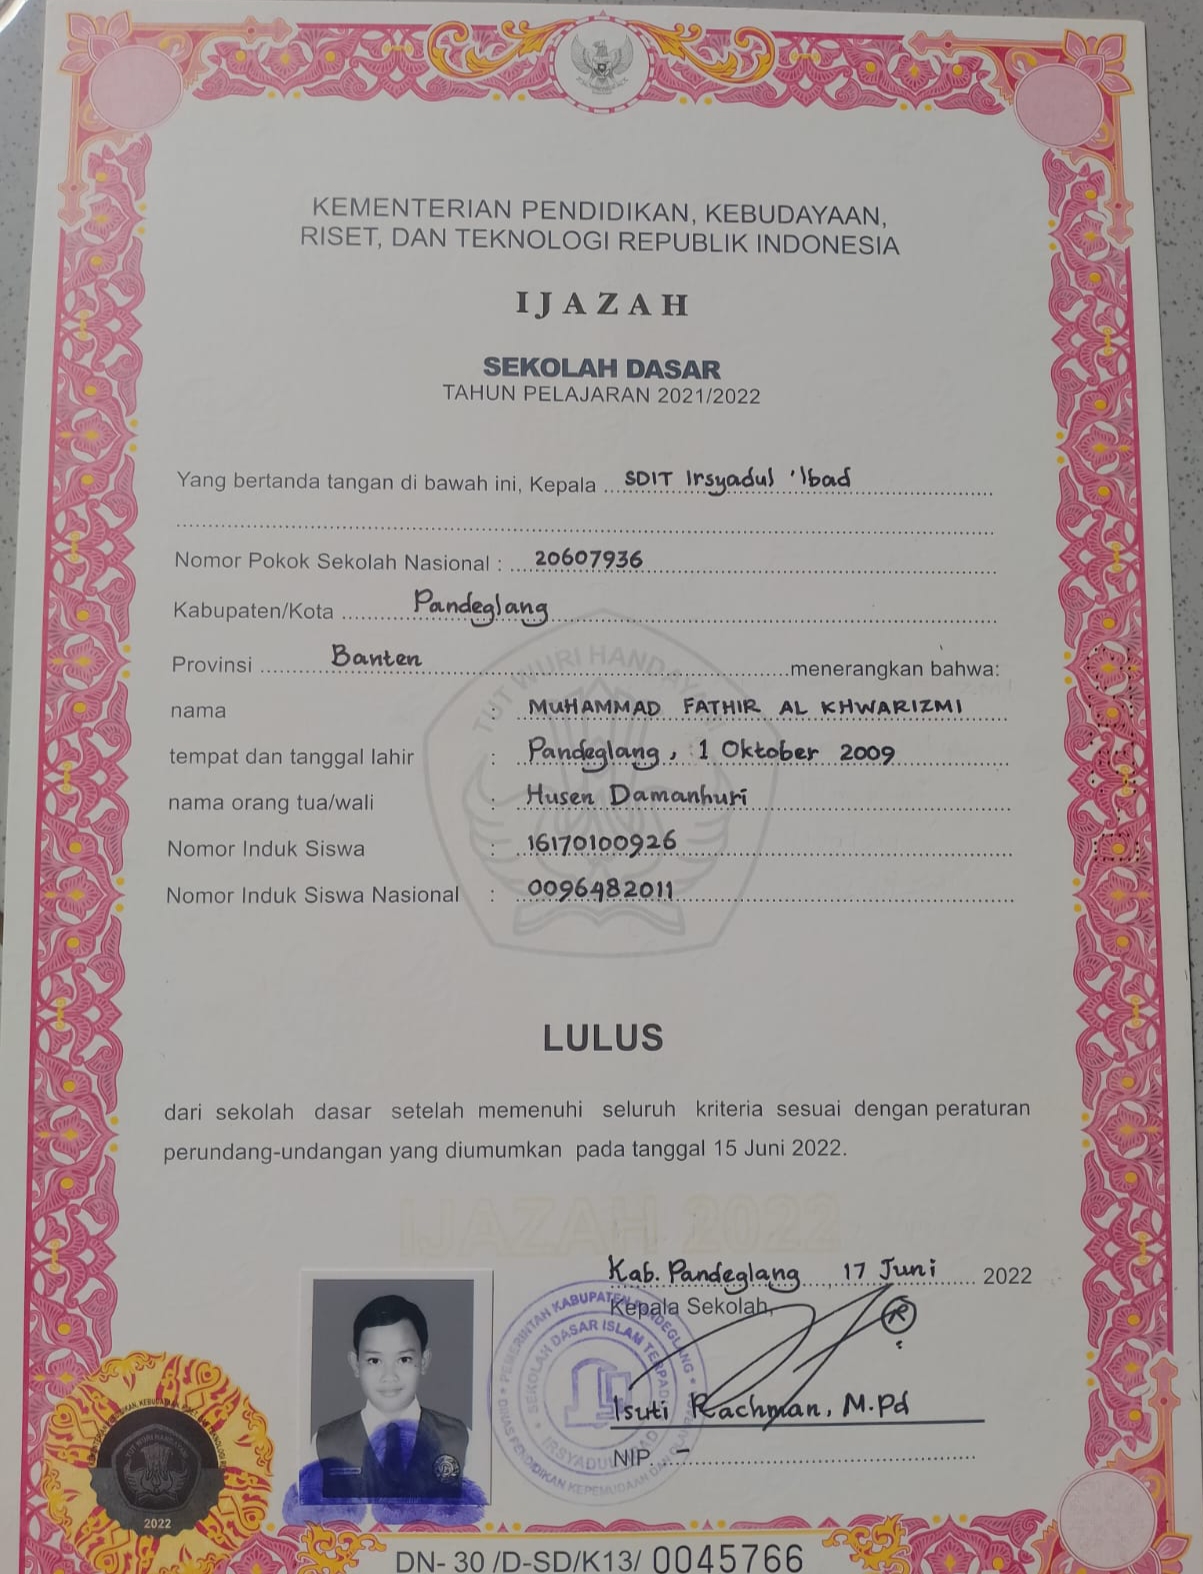 KEMENTERIAN PENDIDIKAN, KEBUDAYAAN,
RISET, DAN TEKNOLOGI REPUBLIK INDONESIA
IJAZAH
SEKOLAH DASAR
TAHUN PELAJARAN 2021/2022
Yang bertanda tangan di bawah ini, Kepala SDIT Irsyadul 'Ibad
Nomor Pokok Sekolah Nasional : 20607936
Kabupaten/Kota Pandeglang
Provinsi Banten menerangkan bahwa:
TUT WURI HANDAYANI
nama : MUHAMMAD FATHIR AL KHWARIZMI
tempat dan tanggal lahir : Pandeglang, 1 Oktober 2009
nama orang tua/wali : Husen Damanhuri
Nomor Induk Siswa : 16170100926
Nomor Induk Siswa Nasional : 0096482011
LULUS
dari sekolah dasar setelah memenuhi seluruh kriteria sesuai dengan peraturan
perundang-undangan yang diumumkan pada tanggal 15 Juni 2022.
IJAZAH 2022
Kab. Pandeglang, 17 Juni 2022
Kepala Sekolah,
PEMERINTAH KABUPATEN PANDEGLANG
SEKOLAH DASAR ISLAM TERPADU
IRSYADUL IBAD
DINAS PENDIDIKAN KEPEMUDAAN DAN
Isuti Rachman, M.Pd
NIP. -
2022
DN- 30 /D-SD/K13/ 0045766